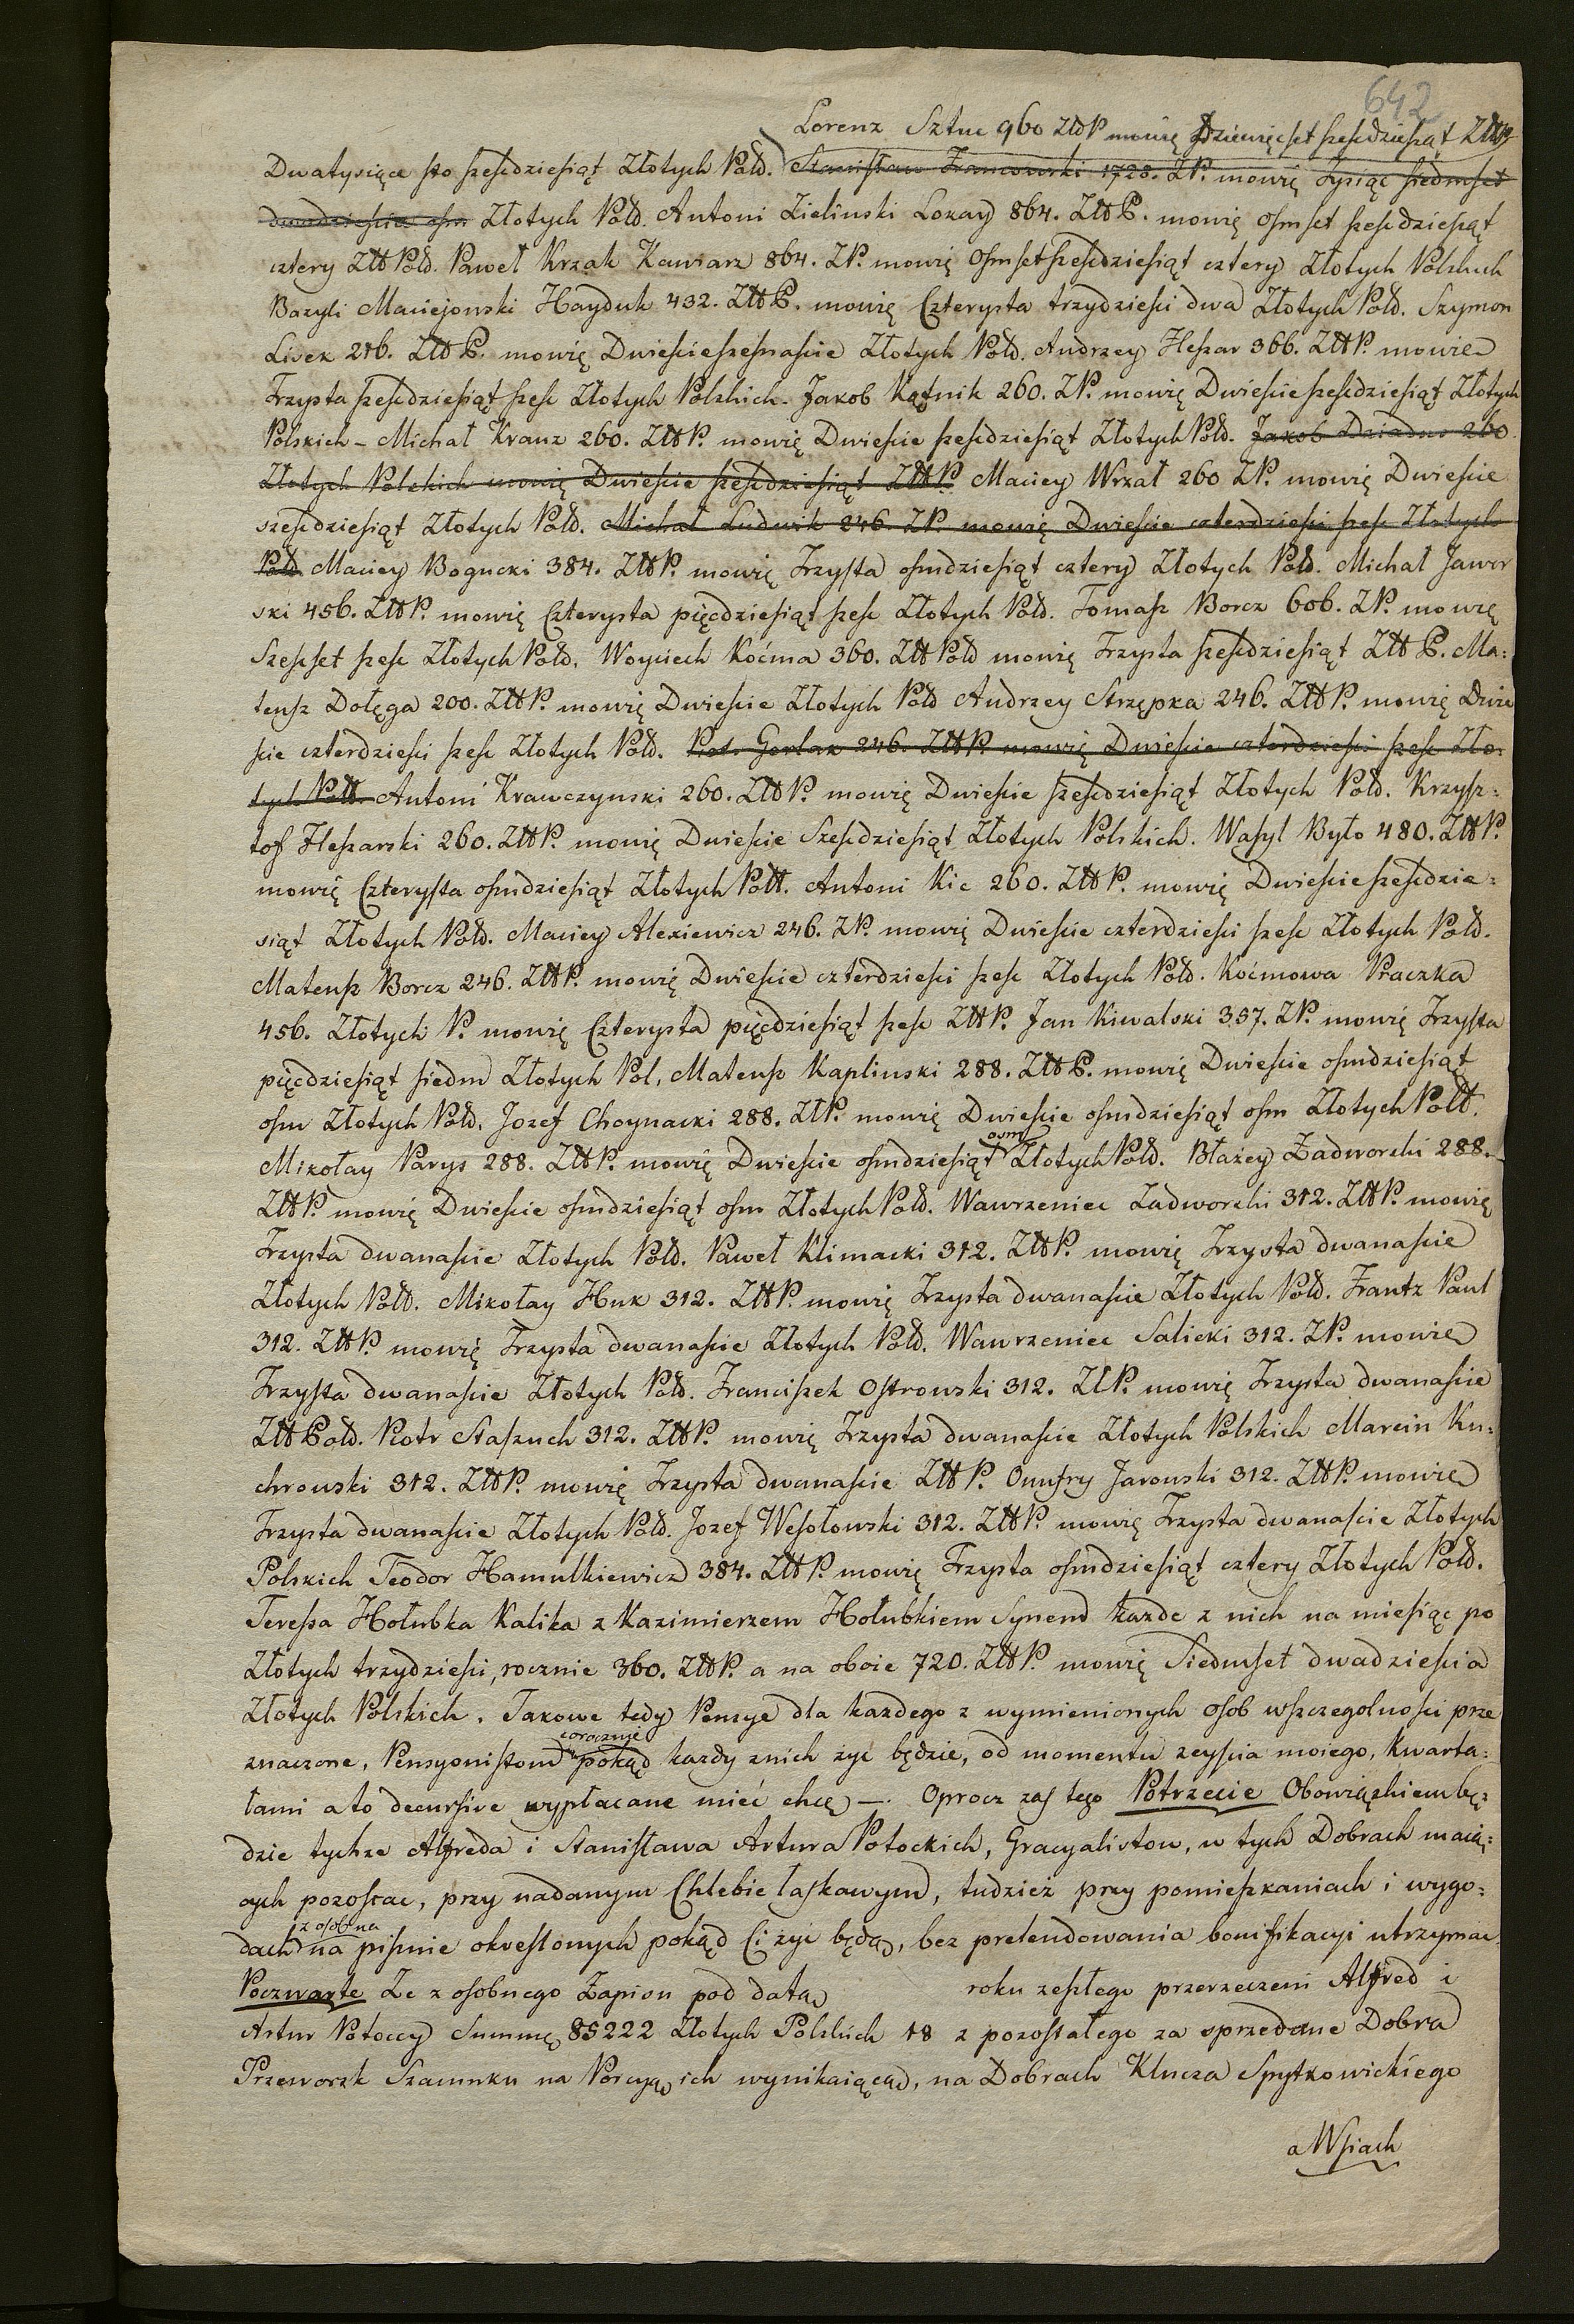 642
Lorenz Sztuc 960 ZłłP mowię Dziewięcset szescdziesiąt ZłłP
Dwatysiące sto szescdziesiąt Złotych Połł. Stanisław Francowski 1728. ZP. mowię Tysiąc siedmset
dwadziescia osm Złotych Połł. Antoni Zielinski Lokay 864. Złł P. mowię osmset szescdziesiąt
cztery Złł Połł. Paweł Krzak Kawiarz 864. ZP. mowię Osmset szescdziesiąt cztery Złotych Polskich
Bazyli Maciejowski Hayduk 432. Złł P. mowię Czterysta trzydziesci dwa Złotych Połł. Szymon
Lisek 216. Złł P. mowię Dwiescieszesnascie Złotych Połł. Andrzey Heszar 366. Złł P. mowie
Trzysta szescdziesiąt szesc Złotych Polskich. Jakob Kątnik 260. ZP. mowię Dwiescie szescdziesiąt Złotych
Polskich – Michał Kranz 260. Złł P. mowię Dwiescie szescdziesiąt Złotych Połł. Jakob Dziadus 260
Złotych Polskich mowię Dwiescie szescdziesiąt Złł P. Maciey Wrzał 260 ZP. mowię Dwiescie
szescdziesiąt Złotych Połł. Michał Ludwik 246. ZP. mowię Dwiescie czterdziesci szesc Złotych
Połł. Maciey Bogucki 384. Złł P. mowię Trzysta osmdziesiąt cztery Złotych Połł. Michał Jawor
ski 456. Złł P. mowię Czterysta pięcdziesiąt szesc Złotych Połł. Tomasz Borcz 606. ZP. mowię
Szescset szesc Złotych Połł. Woyciech Koćma 360. Złł Połł mowię Trzysta szescdziesiąt Złł P. Ma:
teusz Dołęga 200. Złł P. mowię Dwiescie Złotych Połł Andrzey Strzępka 246. Złł P. mowię Dwie
scie czterdziesci szesc Złotych Połł. Piotr Gorlak 246. Złł P. mowię Dwiescie czterdziesci szesc Zło:
tych Połł. Antoni Krawczynski 260. Złł P. mowię Dwiescie szescdziesiąt Złotych Połł. Krzysz:
tof Heszarski 260. Złł P. mowię Dwiescie Szescdziesiąt Złotych Polskich. Wasyl Było 480. Złł P.
mowię Czterysta osmdziesiąt Złotych Połł. Antoni Kic 260. Złł P. mowię Dwiescie szescdzie:
siąt Złotych Połł. Maciey Alexiewicz 246. ZP. mowię Dwiescie czterdziesci szesc Złotych Połł.
Mateusz Borcz 246. Złł P. mowię Dwiescie czterdziesci szesc Złotych Połł. Koćmowa Praczka
456. Złotych P. mowię Czterysta pięcdziesiąt szesc Złł P. Jan Kiwalski 357. ZP. mowię Trzysta
pięcdziesiąt siedm Złotych Pol, Mateusz Kaplinski 288. Złł P. mowię Dwiescie osmdziesiąt
osm Złotych Połł. Jozef Choynacki 288. Zł P. mowię Dwiescie osmdziesiąt osm Złotych Połł.
osm
Mikołay Parys 288. Złł P. mowię Dwiescie osmdziesiąt Złotych Połł. Błażey Zadworski 288.
Złł P. mowię Dwiescie osmdziesiąt osm Złotych Połł. Wawrzeniec Zadworski 312. Złł P. mowię
Trzysta dwanascie Złotych Połł. Paweł Klimacki 312. Złł P. mowię Trzysta dwanascie
Złotych Połł. Mikołay Huk 312. Złł P. mowię Trzysta dwanascie Złotych Połł. Frantz Paul
312. Złł P. mowię Trzysta dwanascie Złotych Połł. Wawrzeniec Salicki 312. ZP. mowie
Trzysta dwanascie Złotych Połł. Franciszek Ostrowski 312. Zł P. mowię Trzysta dwanascie
Złł Połł. Piotr Staszuch 312. Złł P. mowię Trzysta dwanascie Złotych Polskich Marcin Ku:
chrowski 312. Złł P. mowię Trzysta dwanascie Złł P. Onufry Jarowski 312. Złł P. mowie
Trzysta dwanascie Złotych Połł. Jozef Wesołowski 312. Złł P. mowię Trzysta dwanascie Złotych
Polskich Teodor Hamulkiewicz 384. Złł P. mowię Trzysta osmdziesiąt cztery Złotych Połł.
Teressa Hołubka Kalika z Kazimierzem Hołubkiem Synem każde z nich na miesiąc po
Złotych trzydziesci, rocznie 360. Złł P. a na oboie 720. Złł P. mowię Siedmset dwadziescia
Złotych Polskich. Takowe tedy Pensye dla każdego z wymienionych osob wszczegolnosci prze
corocznie
znaczone, Pensyonistom pokąd każdy znich żyć będzie, od momentu zeyscia moiego, kwarta:
łami a to decursive wypłacane mieć chcę —. Oprocz zas tego Potrzecie Obowiązkiem bę:
dzie tychże Alfreda i Stanisława Artura Potockich, Gracyalistow, w tych Dobrach maią:
cych pozostac, przy nadanym Chlebie łaskawym, tudzież przy pomieszkaniach i wygo:
z osobna
dach na pismie okreslonych pokąd ci żyć będą, bez pretendowania bonifikacyi utrzymac.
Poczwarte Ze z osobnego Zapisu pod datą roku zeszłego przerzeczeni Alfred i
Artur Potoccy Summę 85222 Złotych Polskich 18 z pozostałego za sprzedane Dobra
Przeworsk Szacunku na Porcyą ich wynikaiącą, na Dobrach Klucza Spytkowickiego
a Wsiach